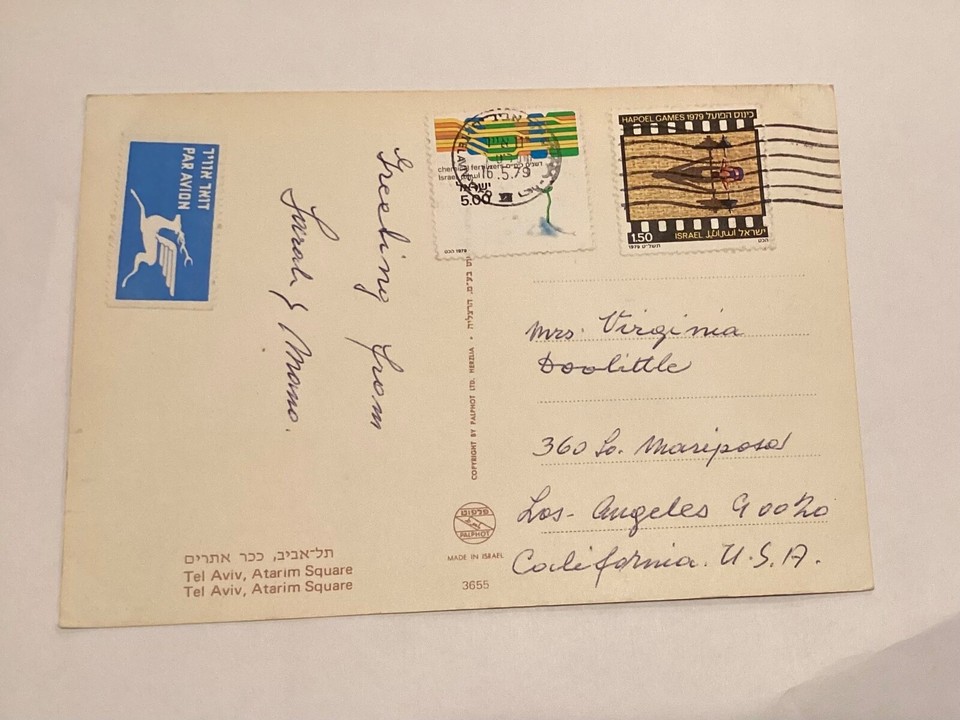 דואר אוויר
PAR AVION
Greeting from
Sarah & Mano.
תל-אביב, ככר אתרים
Tel Aviv, Atarim Square
Tel Aviv, Atarim Square
COPYRIGHT BY PALPHOT LTD. HERZLIA • בע"מ, הרצליה
פלפוט
PALPHOT
MADE IN ISRAEL
3655
TEL AVIV
16.5.79
ישראל
5.00
1979
כינוס הפועל HAPOEL GAMES 1979
1.50 ISRAEL اسرائيل ישראל
1979 תשל"ט
Mrs. Virginia
Doolittle
360 So. Mariposa
Los-Angeles 90020
California. U.S.A.